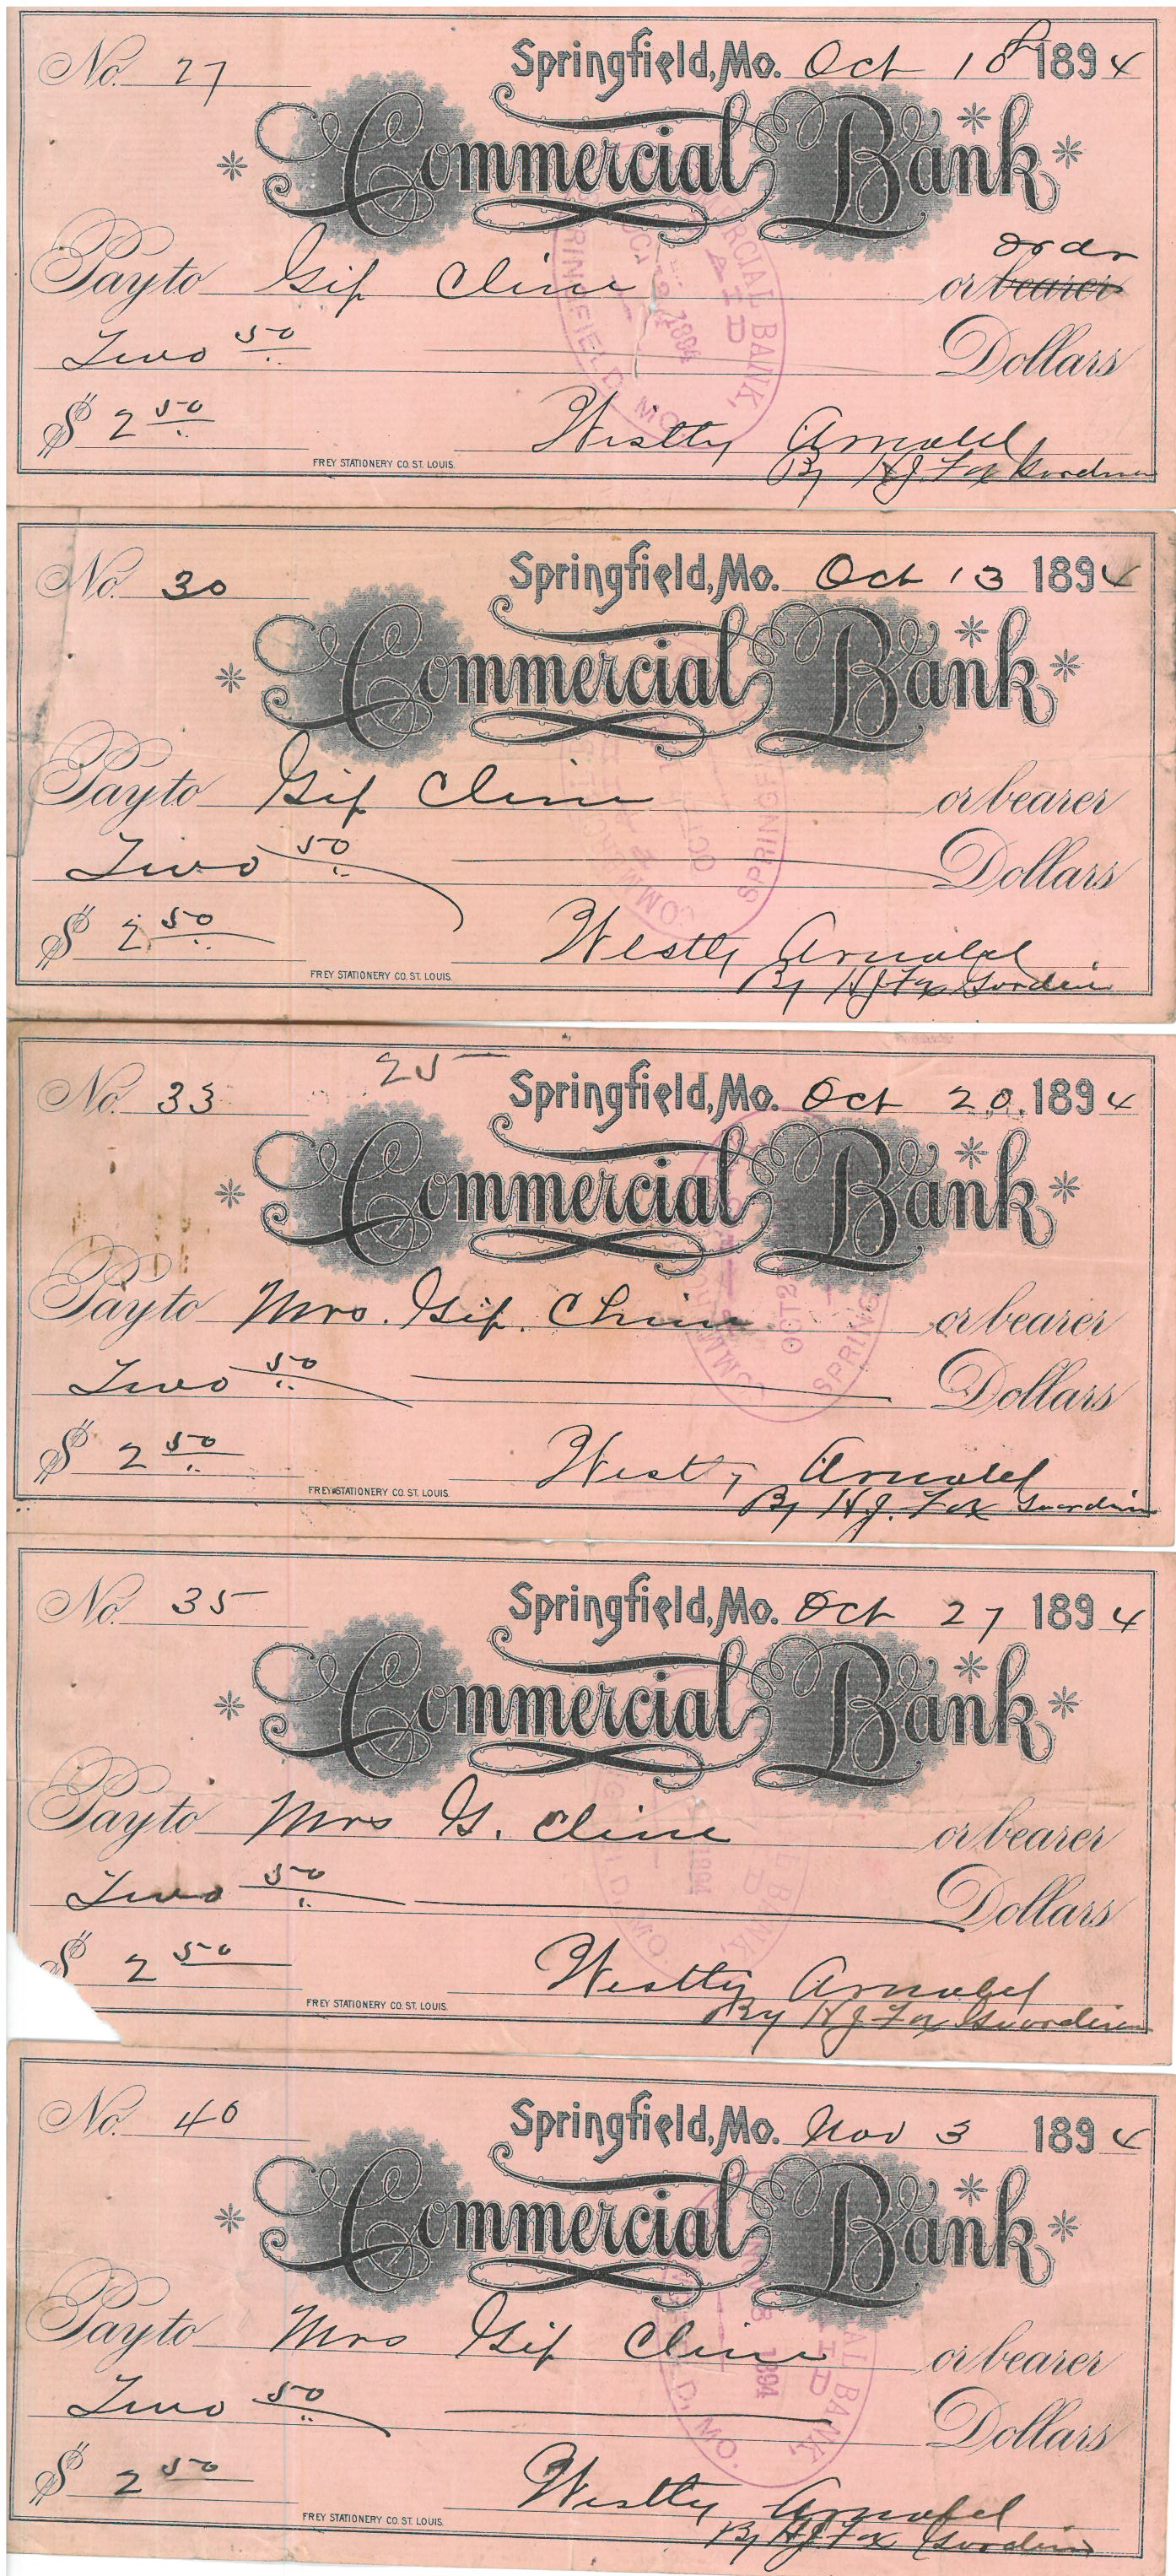 No. 27 Springfield, Mo. Oct 10 1894
Commercial Bank
order
Pay to Gif Cline or bearer
Two 50 Dollars
$ 2 50 Westly Arnold
FREY STATIONERY CO. ST. LOUIS. By H.J. Fox
COMMERCIAL BANK, PAID 1894 SPRINGFIELD, MO.
No. 30 Springfield, Mo. Oct 13 1894
Commercial Bank
Pay to Gif Cline or bearer
Two 50 Dollars
$ 2 50 Westly Arnold
FREY STATIONERY CO. ST. LOUIS. By H.J. Fox
25
No. 33 Springfield, Mo. Oct 20. 1894
Commercial Bank
Pay to Mrs. Gif. Cline or bearer
Two 50 Dollars
$ 2 50 Westly Arnold
FREY STATIONERY CO. ST. LOUIS. By H.J. Fox
No. 35 Springfield, Mo. Oct 27 1894
Commercial Bank
Pay to Mrs G. Cline or bearer
Two 50 Dollars
$ 2 50 Westly Arnold
FREY STATIONERY CO. ST. LOUIS. By H J Fox
No. 40 Springfield, Mo. Nov 3 1894
Commercial Bank
Pay to Mrs Gif Cline or bearer
Two 50 Dollars
$ 2 50 Westly Arnold
FREY STATIONERY CO. ST. LOUIS. By H J Fox